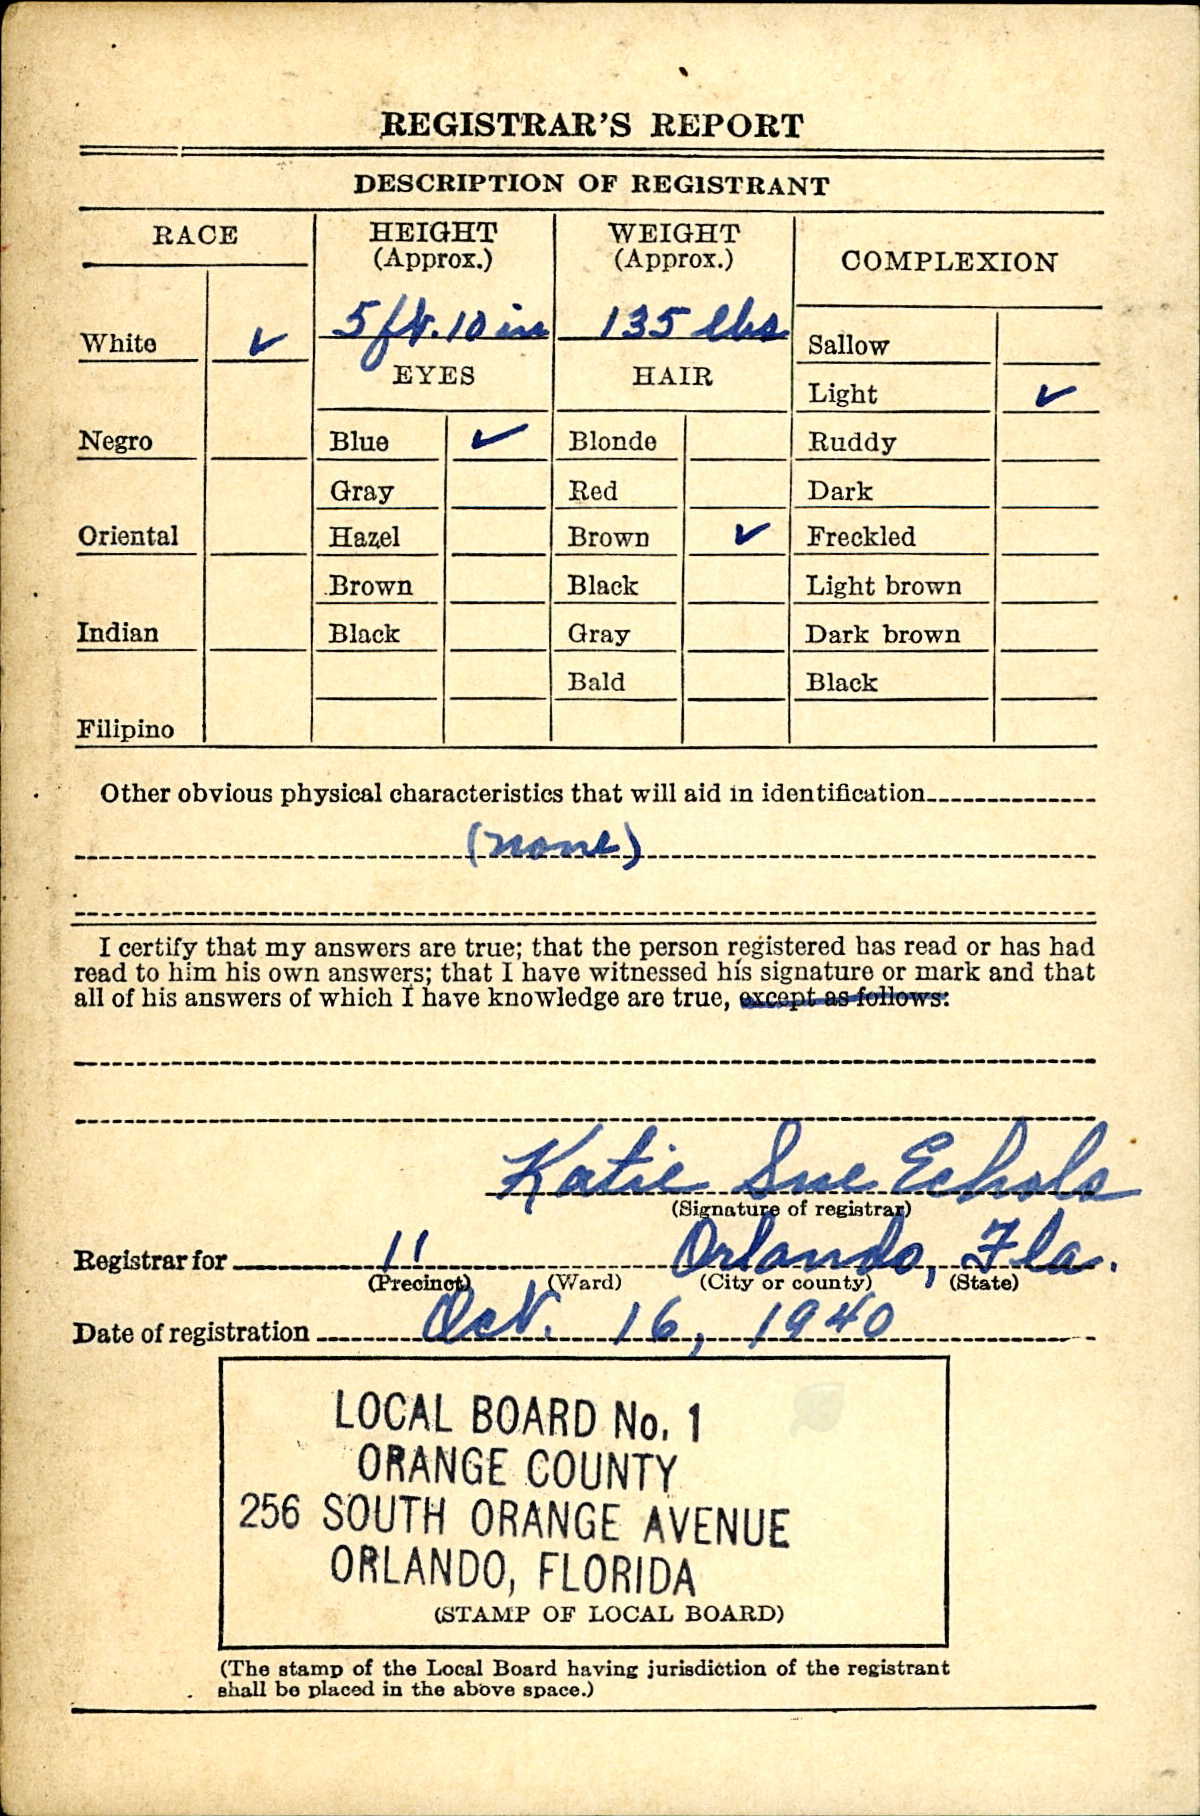 REGISTRAR'S REPORT
DESCRIPTION OF REGISTRANT
RACE
HEIGHT
(Approx.)
WEIGHT
(Approx.)
COMPLEXION
White ✓
5 ft. 10 in
135 lbs
Sallow
EYES
HAIR
Light ✓
Negro
Blue ✓
Blonde
Ruddy
Gray
Red
Dark
Oriental
Hazel
Brown ✓
Freckled
Brown
Black
Light brown
Indian
Black
Gray
Dark brown
Bald
Black
Filipino
Other obvious physical characteristics that will aid in identification
(none)
I certify that my answers are true; that the person registered has read or has had
read to him his own answers; that I have witnessed his signature or mark and that
all of his answers of which I have knowledge are true, except as follows:
Katie Sue Echols
(Signature of registrar)
Registrar for 11 Orlando, Fla.
(Precinct) (Ward) (City or county) (State)
Date of registration Oct. 16, 1940
LOCAL BOARD No. 1
ORANGE COUNTY
256 SOUTH ORANGE AVENUE
ORLANDO, FLORIDA
(STAMP OF LOCAL BOARD)
(The stamp of the Local Board having jurisdiction of the registrant
shall be placed in the above space.)